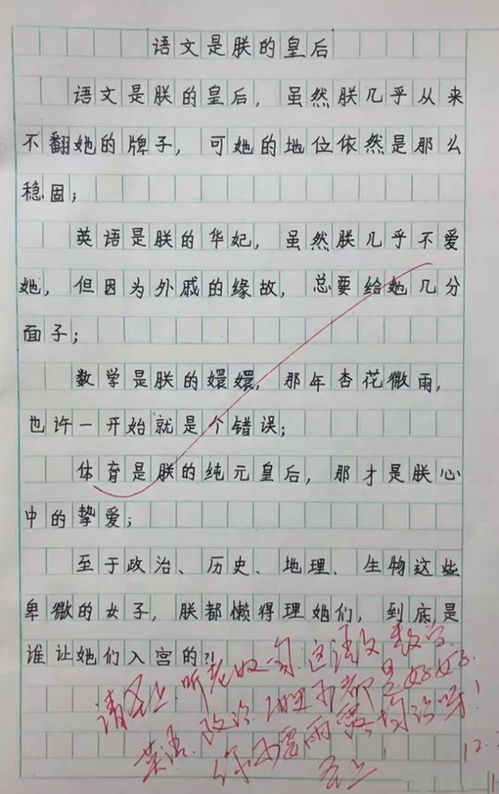 语文是朕的皇后
语文是朕的皇后，虽然朕几乎从来
不翻她的牌子，可她的地位依然是那么
稳固；
英语是朕的华妃，虽然朕几乎不爱
她，但因为外戚的缘故，总要给她几分
面子；
数学是朕的嬛嬛，那年杏花微雨，
也许一开始就是个错误；
体育是朕的纯元皇后，那才是朕心
中的挚爱；
至于政治、历史、地理、生物这些
卑微的女子，朕都懒得理她们，到底是
谁让她们入宫的?!
请皇上听老奴一句，这语文、数学、
英语、政治、地理可都是好
你要雨露均沾呀!
12.